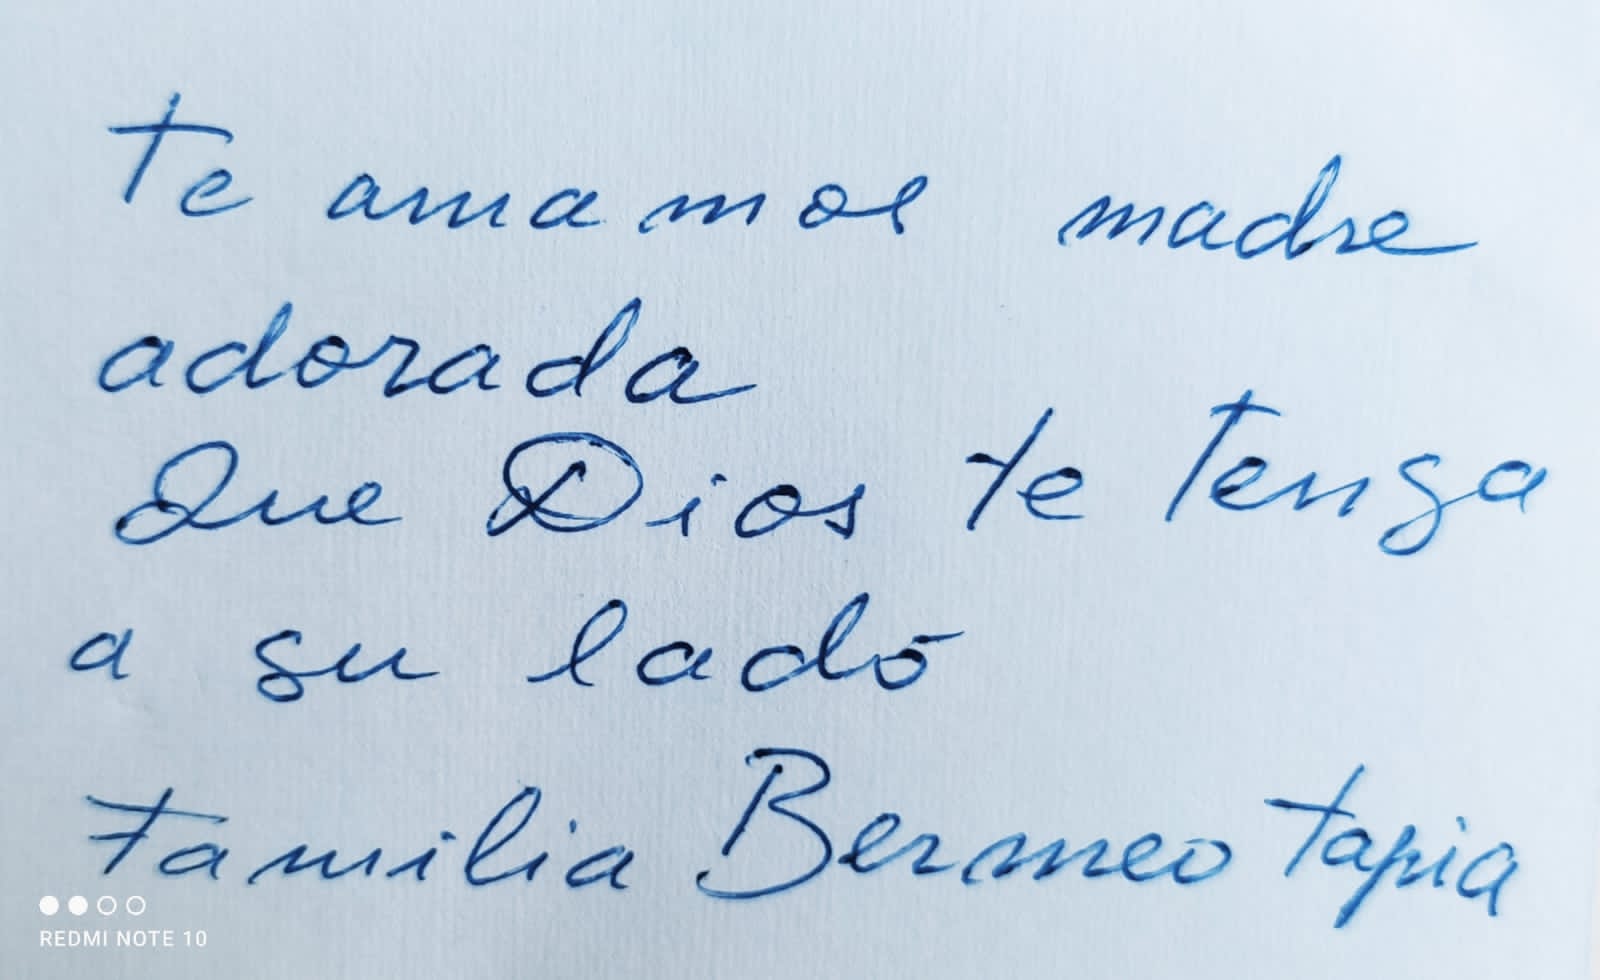 Te amamos madre
adorada
Que Dios te Tenga
a su lado
Familia Bermeo Tapia
REDMI NOTE 10